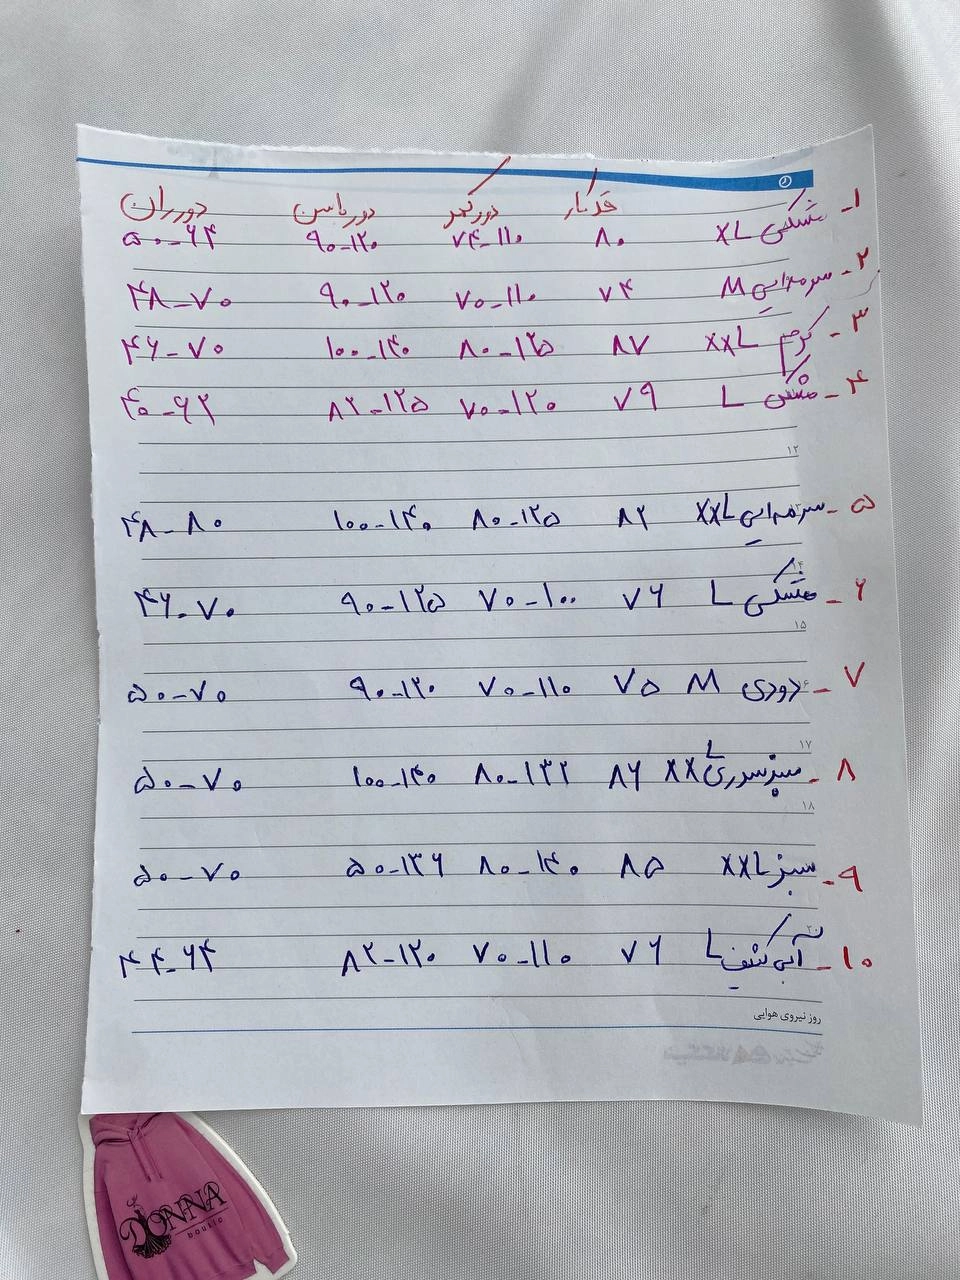 قد کار دور کمر دور باسن دور ران
۱- مشکی XL ۸۰ ۷۴-۱۱۰ ۹۰-۱۲۰ ۵۰-۶۴
۲- سرمه‌ایی M ۷۴ ۷۰-۱۱۰ ۹۰-۱۲۰ ۴۸-۷۰
۳- کرم XXL ۸۷ ۸۰-۱۲۵ ۱۰۰-۱۴۰ ۴۶-۷۰
۴- مشکی L ۷۹ ۷۰-۱۲۰ ۸۲-۱۲۵ ۴۰-۶۲
۱۲
۵- سرمه‌ایی XXL ۸۲ ۸۰-۱۲۵ ۱۰۰-۱۴۰ ۴۸-۸۰
۱۴
۶- مشکی L ۷۶ ۷۰-۱۰۰ ۹۰-۱۲۵ ۴۶-۷۰
۱۵
۷- دودی M ۷۵ ۷۰-۱۱۰ ۹۰-۱۲۰ ۵۰-۷۰
۱۷
۸- سبز سدری XXL ۸۶ ۸۰-۱۳۲ ۱۰۰-۱۴۰ ۵۰-۷۰
۱۸
۹- سبز XXL ۸۵ ۸۰-۱۴۰ ۵۰-۱۳۶ ۵۰-۷۰
۲۰
۱۰- آبی کثیف L ۷۶ ۷۰-۱۱۰ ۸۲-۱۲۰ ۴۴-۶۴
روز نیروی هوایی
DONNA
boutic